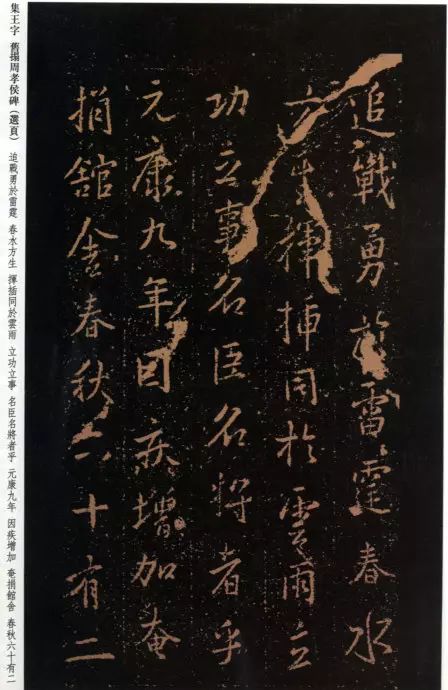 追戰勇於雷霆春水
方生揮插同於雲雨立
功立事名臣名將者乎
元康九年因疾增加奄
捐舘舍春秋六十有二
集王字 舊搨周孝侯碑（選頁） 追戰勇於雷霆 春水方生 揮插同於雲雨 立功立事 名臣名將者乎 元康九年 因疾增加 奄捐館舍 春秋六十有二